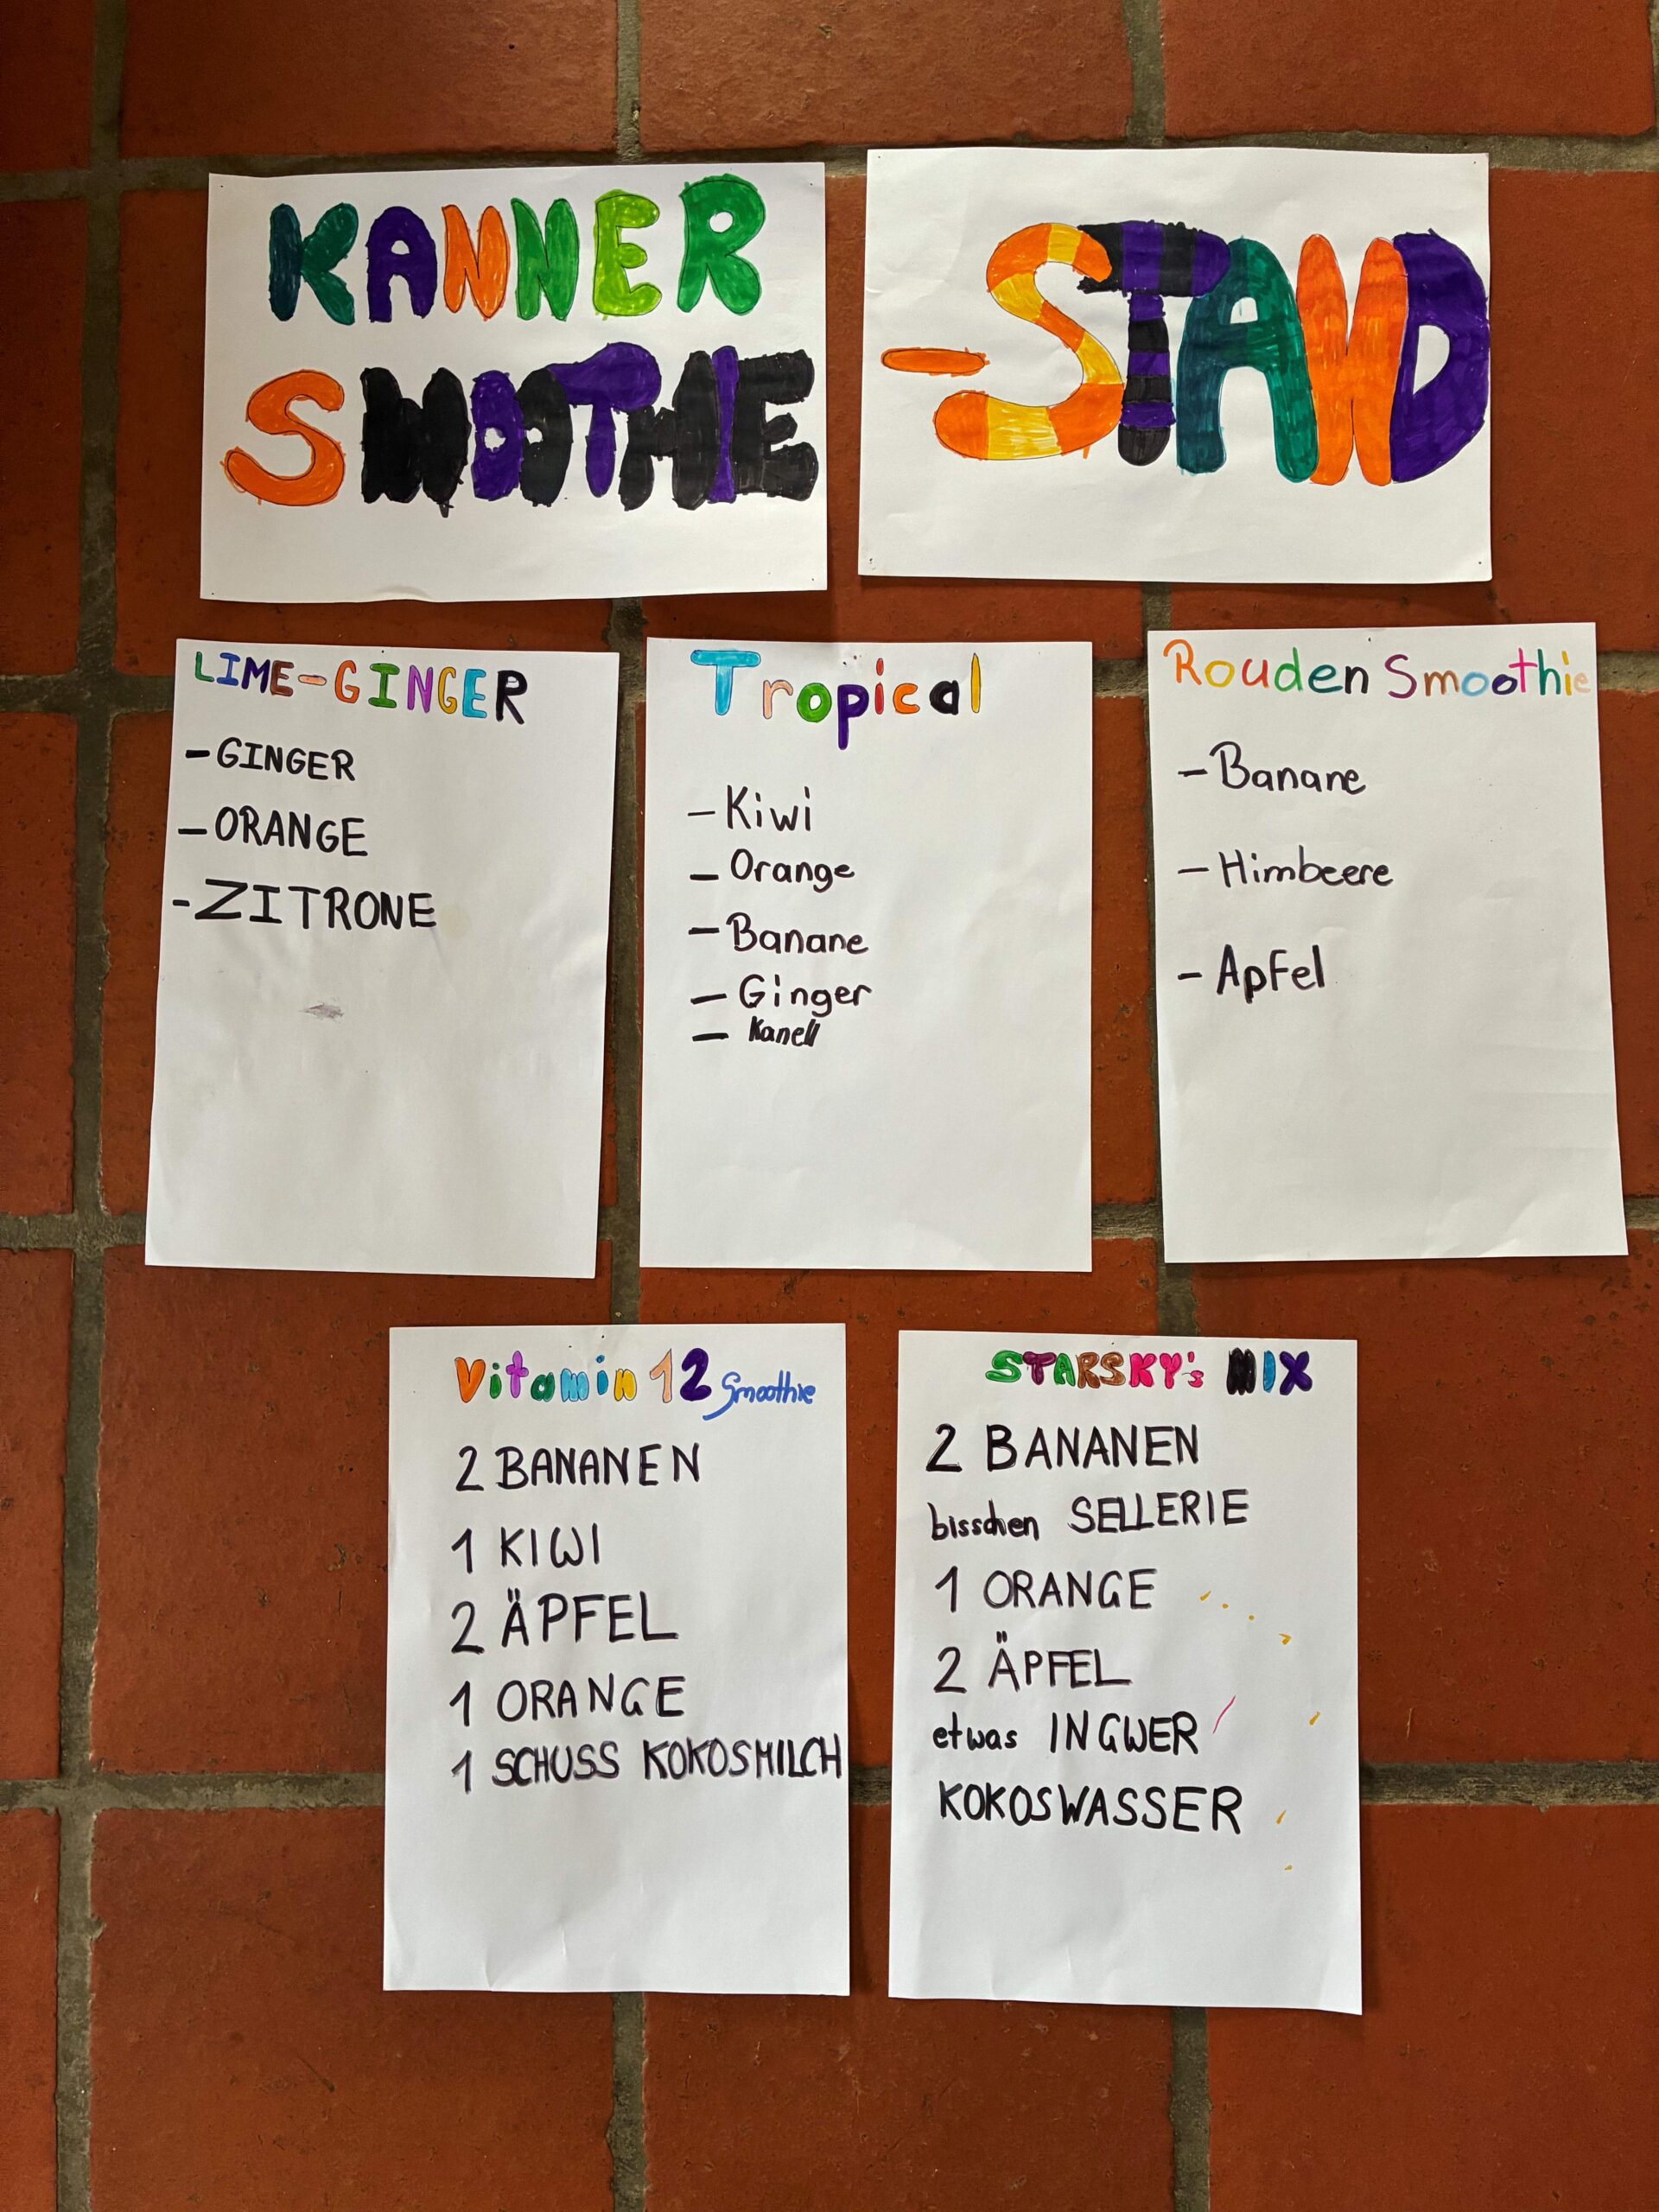 KANNER
SMOOTHIE
-STAND
LIME-GINGER
-GINGER
-ORANGE
-ZITRONE
Tropical
-Kiwi
-Orange
-Banane
-Ginger
-Kanell
Rouden Smoothie
-Banane
-Himbeere
-Apfel
Vitamin 12 Smoothie
2 BANANEN
1 KIWI
2 ÄPFEL
1 ORANGE
1 SCHUSS KOKOSMILCH
STARSKY's MIX
2 BANANEN
bisschen SELLERIE
1 ORANGE
2 ÄPFEL
etwas INGWER
KOKOSWASSER